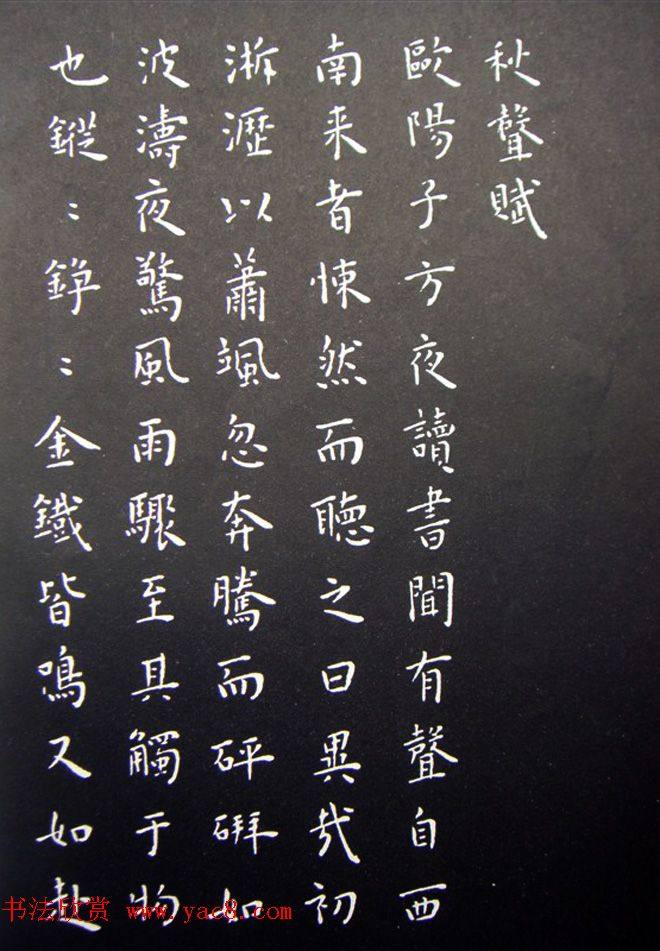 秋聲賦
歐陽子方夜讀書聞有聲自西
南来者悚然而聽之曰異哉初
淅瀝以蕭颯忽奔騰而砰硑如
波濤夜驚風雨驟至其觸于物
也鏦〻錚〻金鐵皆鳴又如赴
书法欣赏 www.yac8.com